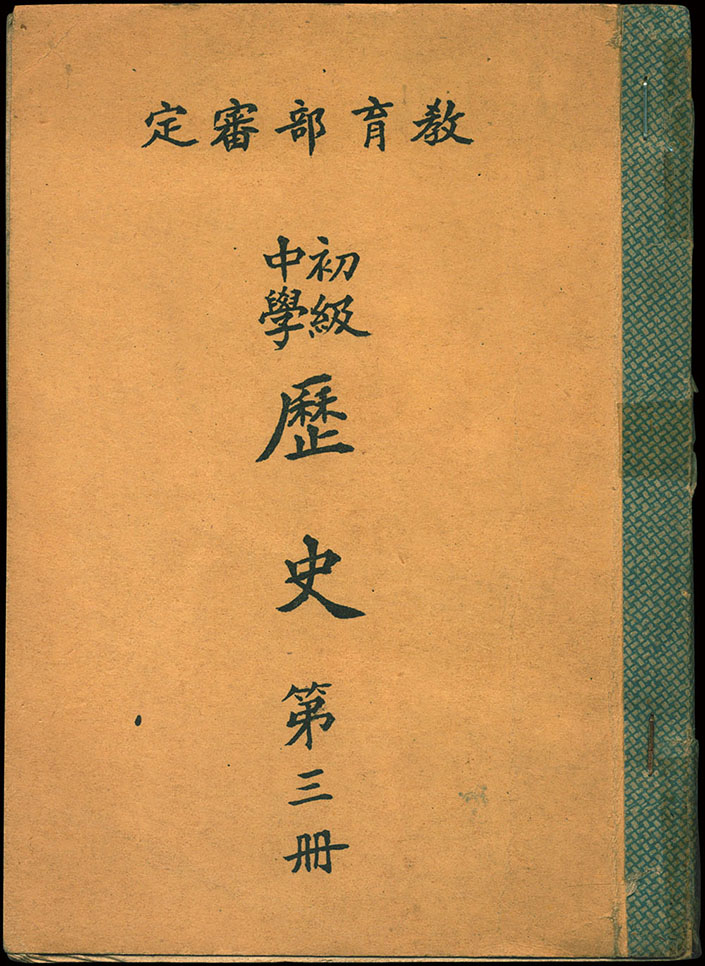 教育部審定
初級
中學
歷史
第三冊